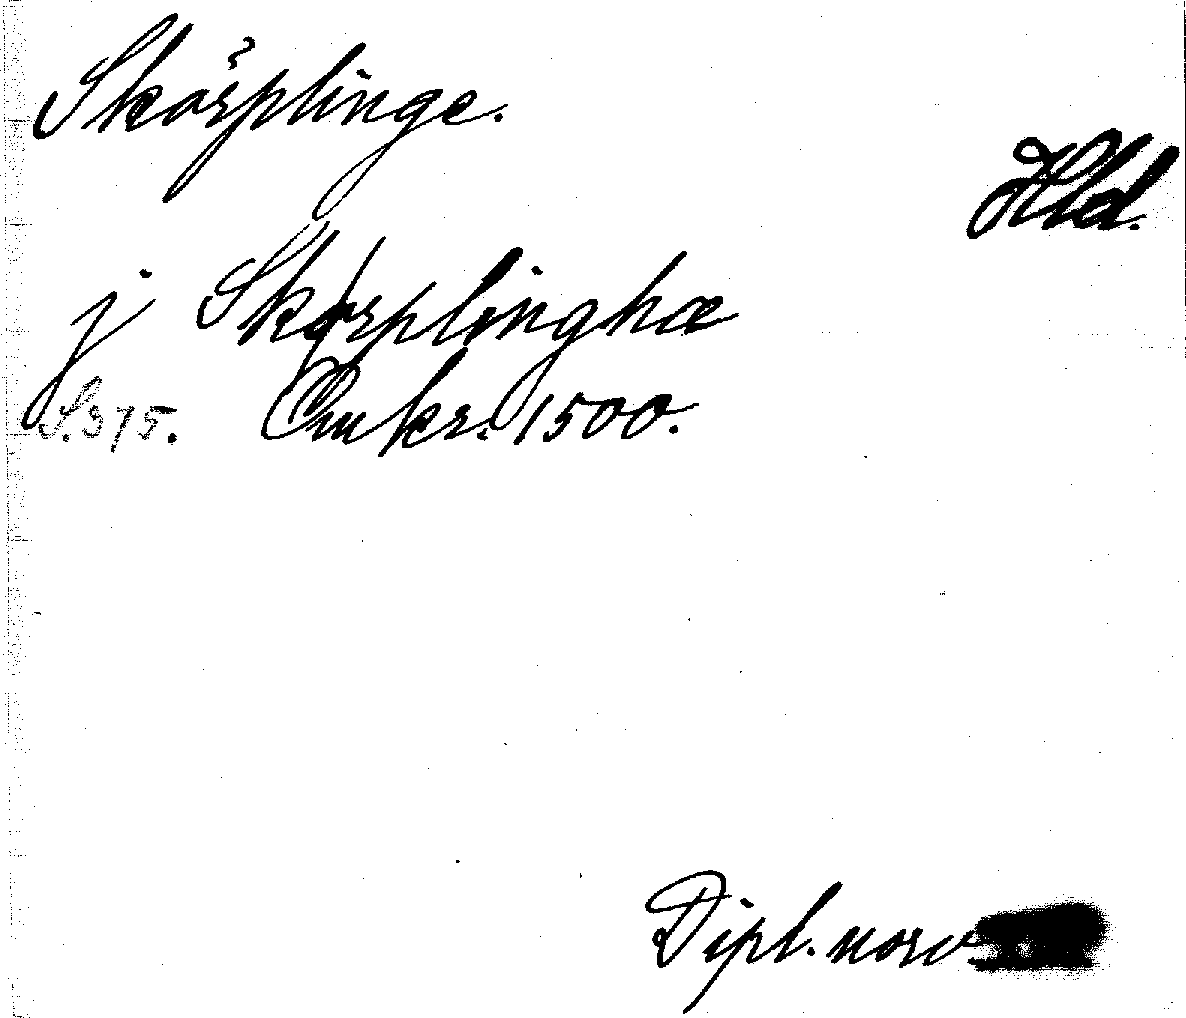 Skörplinge.
Hld.
j Skørplinghæ
S. 375. Omkr. 1500.
Dipl. norv.